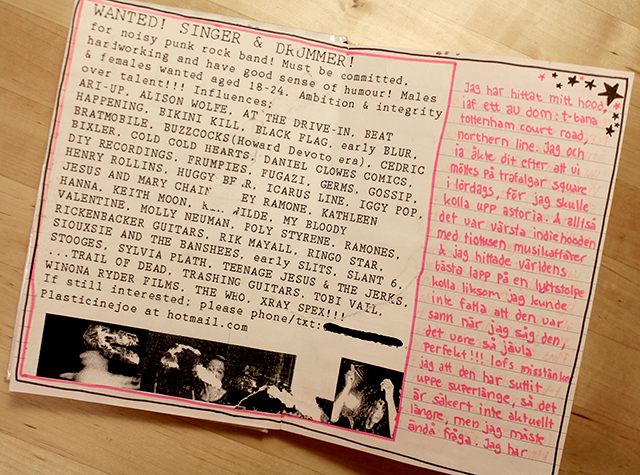 WANTED! SINGER & DRUMMER!
for noisy punk rock band! Must be committed,
hardworking and have good sense of humour! Males
& females wanted aged 18-24. Ambition & integrity
over talent!!! Influences:
ARI-UP, ALISON WOLFE, AT THE DRIVE-IN, BEAT
HAPPENING, BIKINI KILL, BLACK FLAG, early BLUR,
BRATMOBILE, BUZZCOCKS(Howard Devoto era), CEDRIC
BIXLER, COLD COLD HEARTS, DANIEL CLOWES COMICS,
DIY RECORDINGS, FRUMPIES, FUGAZI, GERMS, GOSSIP,
HENRY ROLLINS, HUGGY BEAR, ICARUS LINE, IGGY POP,
JESUS AND MARY CHAIN, EY RAMONE, KATHLEEN
HANNA, KEITH MOON, K WILDE, MY BLOODY
VALENTINE, MOLLY NEUMAN, POLY STYRENE, RAMONES,
RICKENBACKER GUITARS, RIK MAYALL, RINGO STAR,
SIOUXSIE AND THE BANSHEES, early SLITS, SLANT 6,
STOOGES, SYLVIA PLATH, TEENAGE JESUS & THE JERKS,
...TRAIL OF DEAD, TRASHING GUITARS, TOBI VAIL,
WINONA RYDER FILMS, THE WHO, XRAY SPEX!!!
If still interested; please phone/txt:
Plasticinejoe at hotmail.com
Jag har hittat mitt hood,
iaf ett av dom: t-bana
tottenham court road,
northern line. Jag och
ia åkte dit efter att vi
möttes på trafalgar square
i lördags, för jag skulle
kolla upp astoria. & alltså
det var värsta indiehooden
med tiotusen musikaffärer
& jag hittade världens
bästa lapp på en lyktstolpe
kolla liksom jag kunde
inte fatta att den var
sann när jag såg den,
det vore så jävla
perfekt!!! Iofs misstänker
jag att den har suttit
uppe superlänge, så det
är säkert inte aktuellt
längre, men jag måste
ändå fråga. Jag har